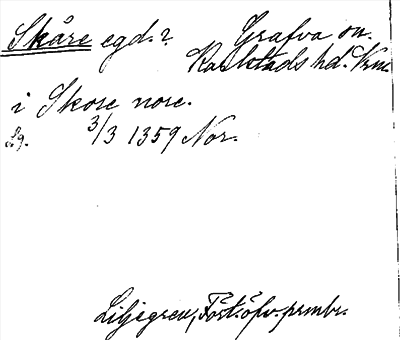 Skåre egd.? Grafva sn.
Karlstads hd. Vrml.
i Skose nore.
Lg. 3/3 1359 Nor.
Liljegren, Fört. öfv. prmbr.